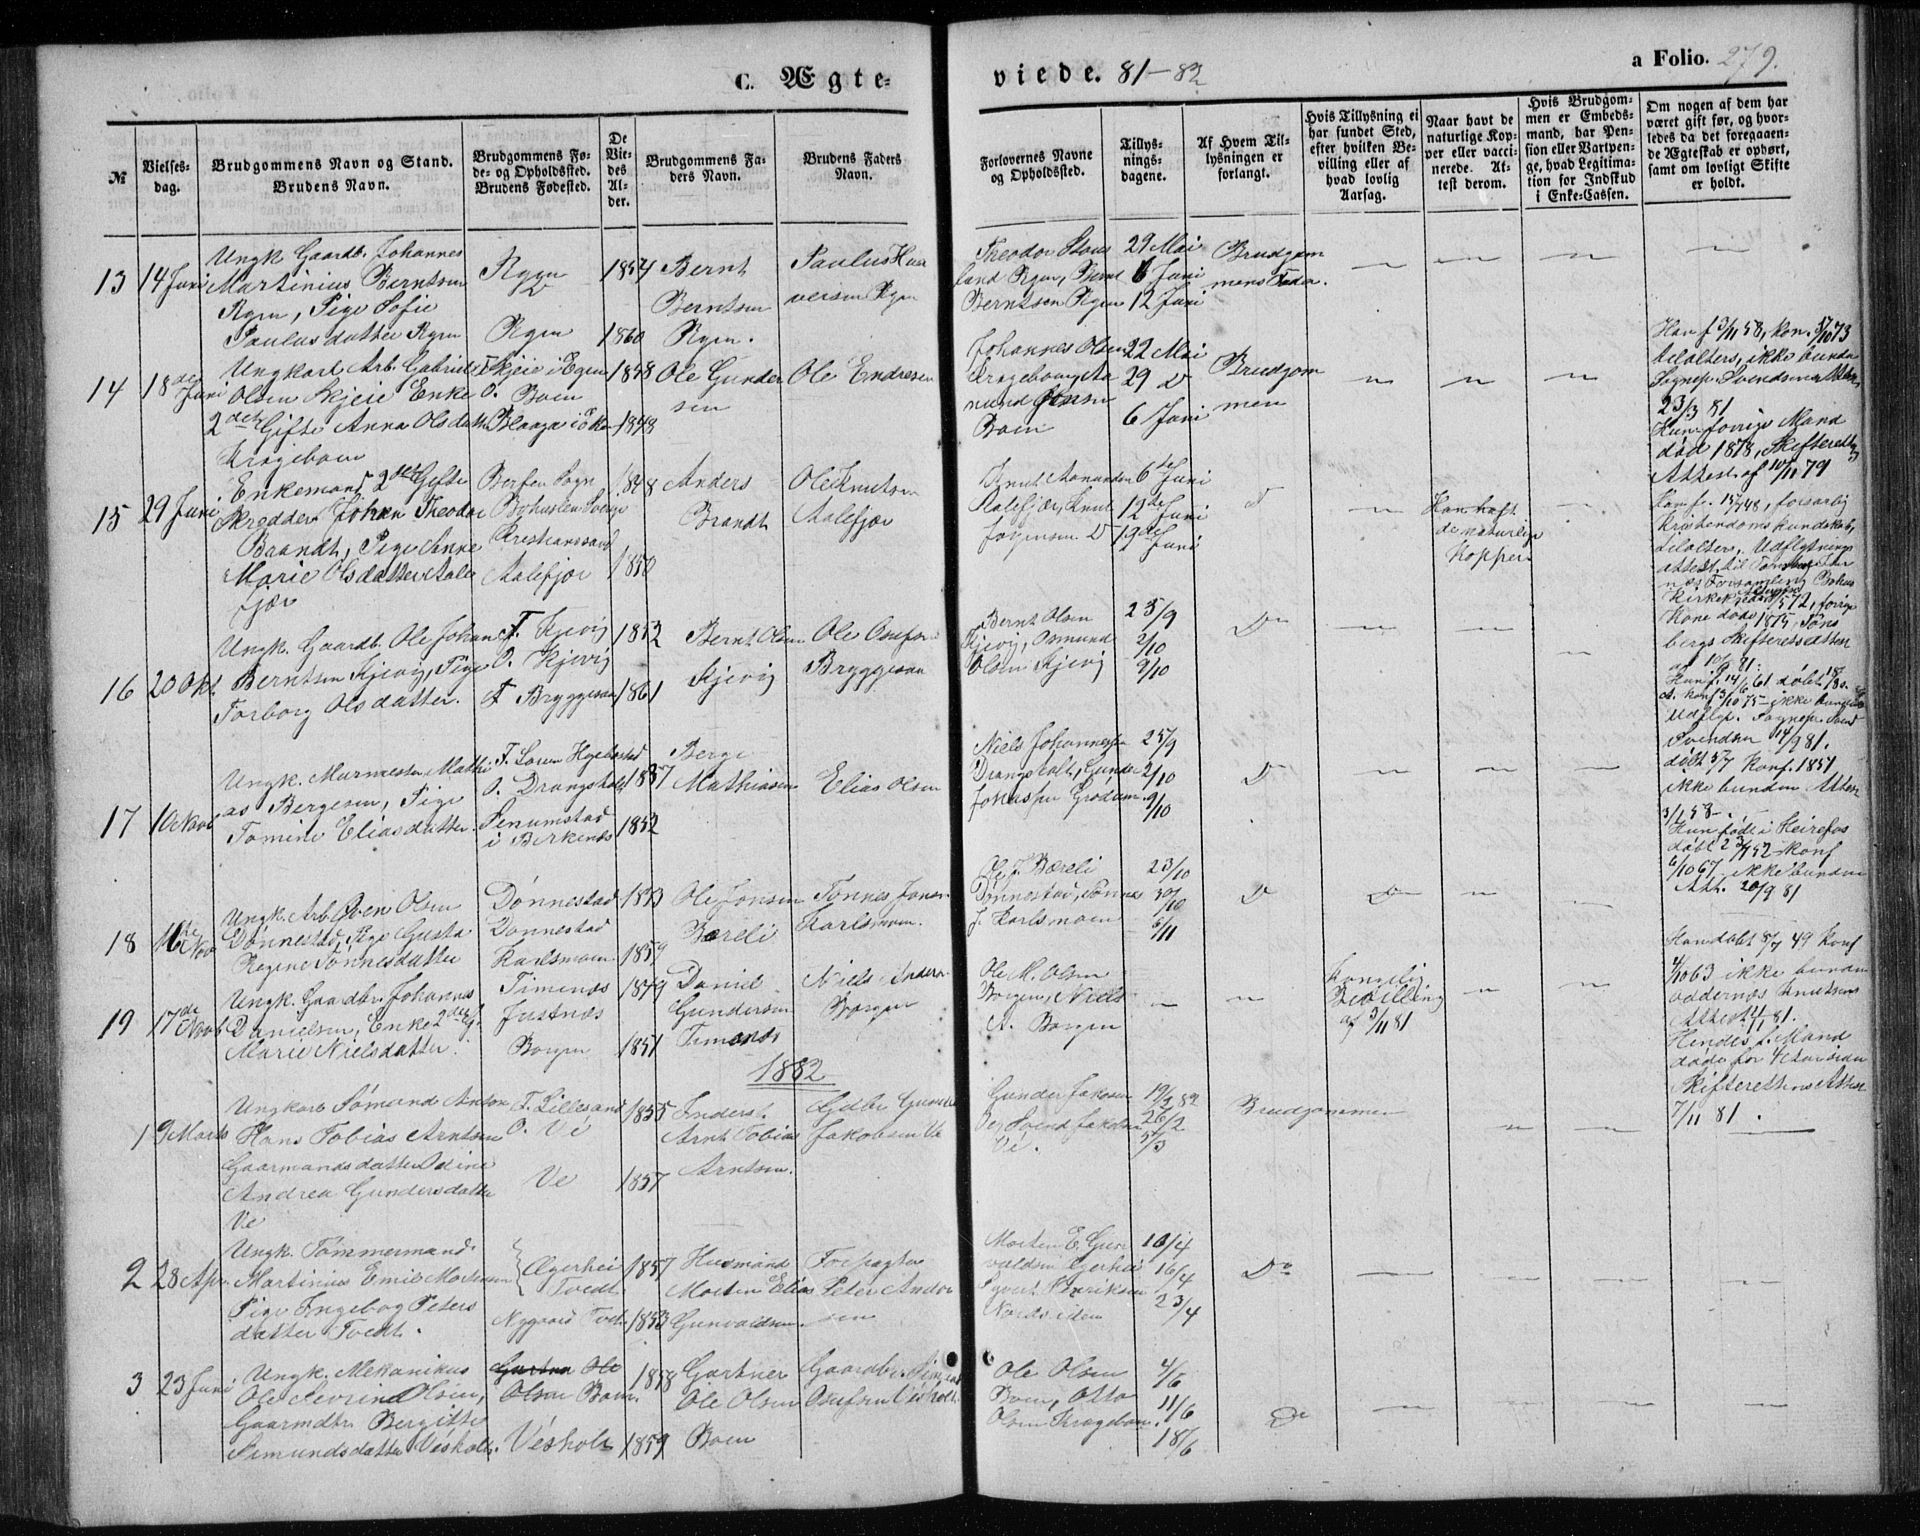 C. Ægte-
viede. 81-82
a Folio. 279.
№
Vielses-
dag.
Brudgommens Navn og Stand.
Brudens Navn.
Brudgommens Fø-
de- og Opholdssted.
Brudens Fødested.
De
Vie-
des
Al-
der.
Brudgommens Fa-
ders Navn.
Brudens Faders
Navn.
Forlovernes Navne
og Opholdssted.
Tillys-
nings-
dagene.
Af Hvem Til-
lysningen er
forlangt.
Hvis Tillysning ei
har fundet Sted,
efter hvilken Be-
villing eller af
hvad lovlig
Aarsag.
Naar havt de
naturlige Kop-
per eller vacci-
nerede. At-
test derom.
Hvis Brudgom-
men er Embeds-
mand, har Pen-
sion eller Vartpen-
ge, hvad Legitima-
tion for Indskud
i Enke-Cassen.
Om nogen af dem har
været gift før, og hvor-
ledes da det foregaaen-
de Ægteskab er ophørt,
samt om lovligt Skifte
er holdt.
13 14 Juni
Ungk Gaardb. Johannes
Martinius Berntsen
Rgen, Pige Sofie
Paulusdatter Rgen
Rgen
Rgen
1854
1860
Bernt
Berntsen
Rgen.
Paulus Haa
versen Rgen
Theodor Stous
land Rgen, Bernt
Berntsen Rgen
29 Mai
6 Juni
12 Juni
Brudgom
mens Fader.
14 18de Juni
Ungkarl Arb. Gabriel
Olsen Skjeie Enke
2det Gifte Anna Olsdatter
Krageboen
F. Skjeie i Egen
O. Boen
1848
1848
Ole Gunder
sen
Ole Endresen
Johannes Olsen
Krageboen
Boen
22 Mai
29 D
6 Juni
Brudgom
men
Han f 3/11 58, kon. 5/10 73
tilalters, ikke bunden
Sognep. Svendsens Attest
23/3 81
Hun forrige Mand
død 1878, Skifteretts
Attest af 10/11 79
15 29 Juni
Enkemand 2det Gifte
Skredder Johan Theodor
Brandt, Pige Anne
Marie Olsdatter Aale
fjær
Berfen Sogn
Bohuslen Sverige
Kristianssand
Aalefjær
1848
1850
Anders
Brandt
Ole Knutsen
Aalefjær
Knut Aanundsen
Aalefjær, Knut
Jørgensen D
6te Juni
12te Juni
19de Juni
Han haft
de naturlige
Kopper
Han f. 15/7 48, forsvarlig
Kristendomskundskab,
tilalters. Udflytnings
attest til Tønsberg
Kone døde 1875, Tøns
bergs Skifteretsattest
af 10/6 81.
16 20 Okt.
Ungk. Gaardb. Ole Johan
Berntsen Kjevig, Pige
Torborg Olsdatter.
F. Kjevig
O. Kjevig
F Bryggesaa
1852
1861
Bernt Olsen
Kjevig
Ole Osufsen
Bryggesaa
Bernt Olsen
Kjevig, Osmund
Olsen Kjevig
25/9
2/10
9/10
Do
Hun f. 14/6 61 døbt 18/8 s.
a. konf 3/10 75 ikke bunden
Udflyt. Sognep. Sand
Svendsen 14/9 81.
17 10 Novb
Ungk. Murmester Mathi
as Bergesen, Pige
Tomine Eliasdatter.
F. Loven Hegebostad
O. Drangsholt
Senumstad
i Birkenæs
1837
1852
Berge
Mathiasen
Elias Olsen
Niels Johannesen
Drangsholt, Gunder
Jokasen Grødum.
25/9
2/10
9/10
Do
døbt 5/7 Konf. 1851
ikke bunden Attest
3/1 58.
Hun født i Heirefos
døbt 23/7 52 konf
6/10 67 ikke bunden
Att. 20/9 81
18 16de Nov
Ungk. Arb. Even Olsen
Dønnestad, Pige Gusta
Regine Tønnesdatter
Dønnestad
Dønnestad
Karlsmoen
1853
1859
Ole Jonsen
Bæreli
Tønnes Jonsen
Karlsmoen
Ole J. Bæreli
Dønnestad, Tønnes
J. Karlsmoen
23/10
30/10
6/11
D
D
19 17de Novb
Ungk. Gaardbr. Johannes
Danielsen, Enke 2det G.
Marie Nielsdatter.
Timenæs
Justnæs
Borgen
1849
1851
Daniel
Gundersen
Timenæs
Niels Anders
Borgen
Ole M. Olsen
Borgen, Niels
A. Borgen
Kongelig
Bevilling
af 3/11 81
Han døbt 8/7 49 Konf
4/10 63 ikke bunden
Oddernæs Knutsens
Attest 2/11 81.
Hendes f. Mand
døde for 4 Aar siden
Skifterettens Attest
7/11 81.
1882
1 9 Marts
Ungkarl Sømand Anton
Hans Tobias Arntsen
Gaarmandsdatter Odine
Andrea Gundersdatter
Ve
F. Lillesand
O. Ve
Ve
1855
1857
Inders.
Arnt Tobias
Arntsen.
Gdbr Gunder
Jakobsen Ve
Gunder Jakobsen
Ve, Svend Jakobsen
Ve.
19/2 82
26/2
5/3
Brudgommen
2 28 Apr.
Ungk. Tømmermand
Martinius Emil Mortensen
Pige Ingebog Peters
datter Tvedt.
Ægerhei
Tvedt
Nygaard Tvedt
1857
1853
Husmand
Morten Elias
Gunvaldsen.
Forpagter
Peter Ander
sen
Morten E. Gun
valdsen Egerhei
Syvert Henriksen
Nordsiden
10/4
16/4
23/4
Do
3 23 Juni
Ungk. Mekanikus
Ole Severin Olsen,
Gaarmdtr Bergitte
Simundsdatter Vesholt.
Gartner Ole
Olsen Boen.
Vesholt
1858
1859
Gartner
Ole Olsen
Boen
Gaardbr. Simund
Osufsen Vesholt
Ole Olsen
Boen, Otto
Olsen Kragebon.
4/6
11/6
18/6
Do